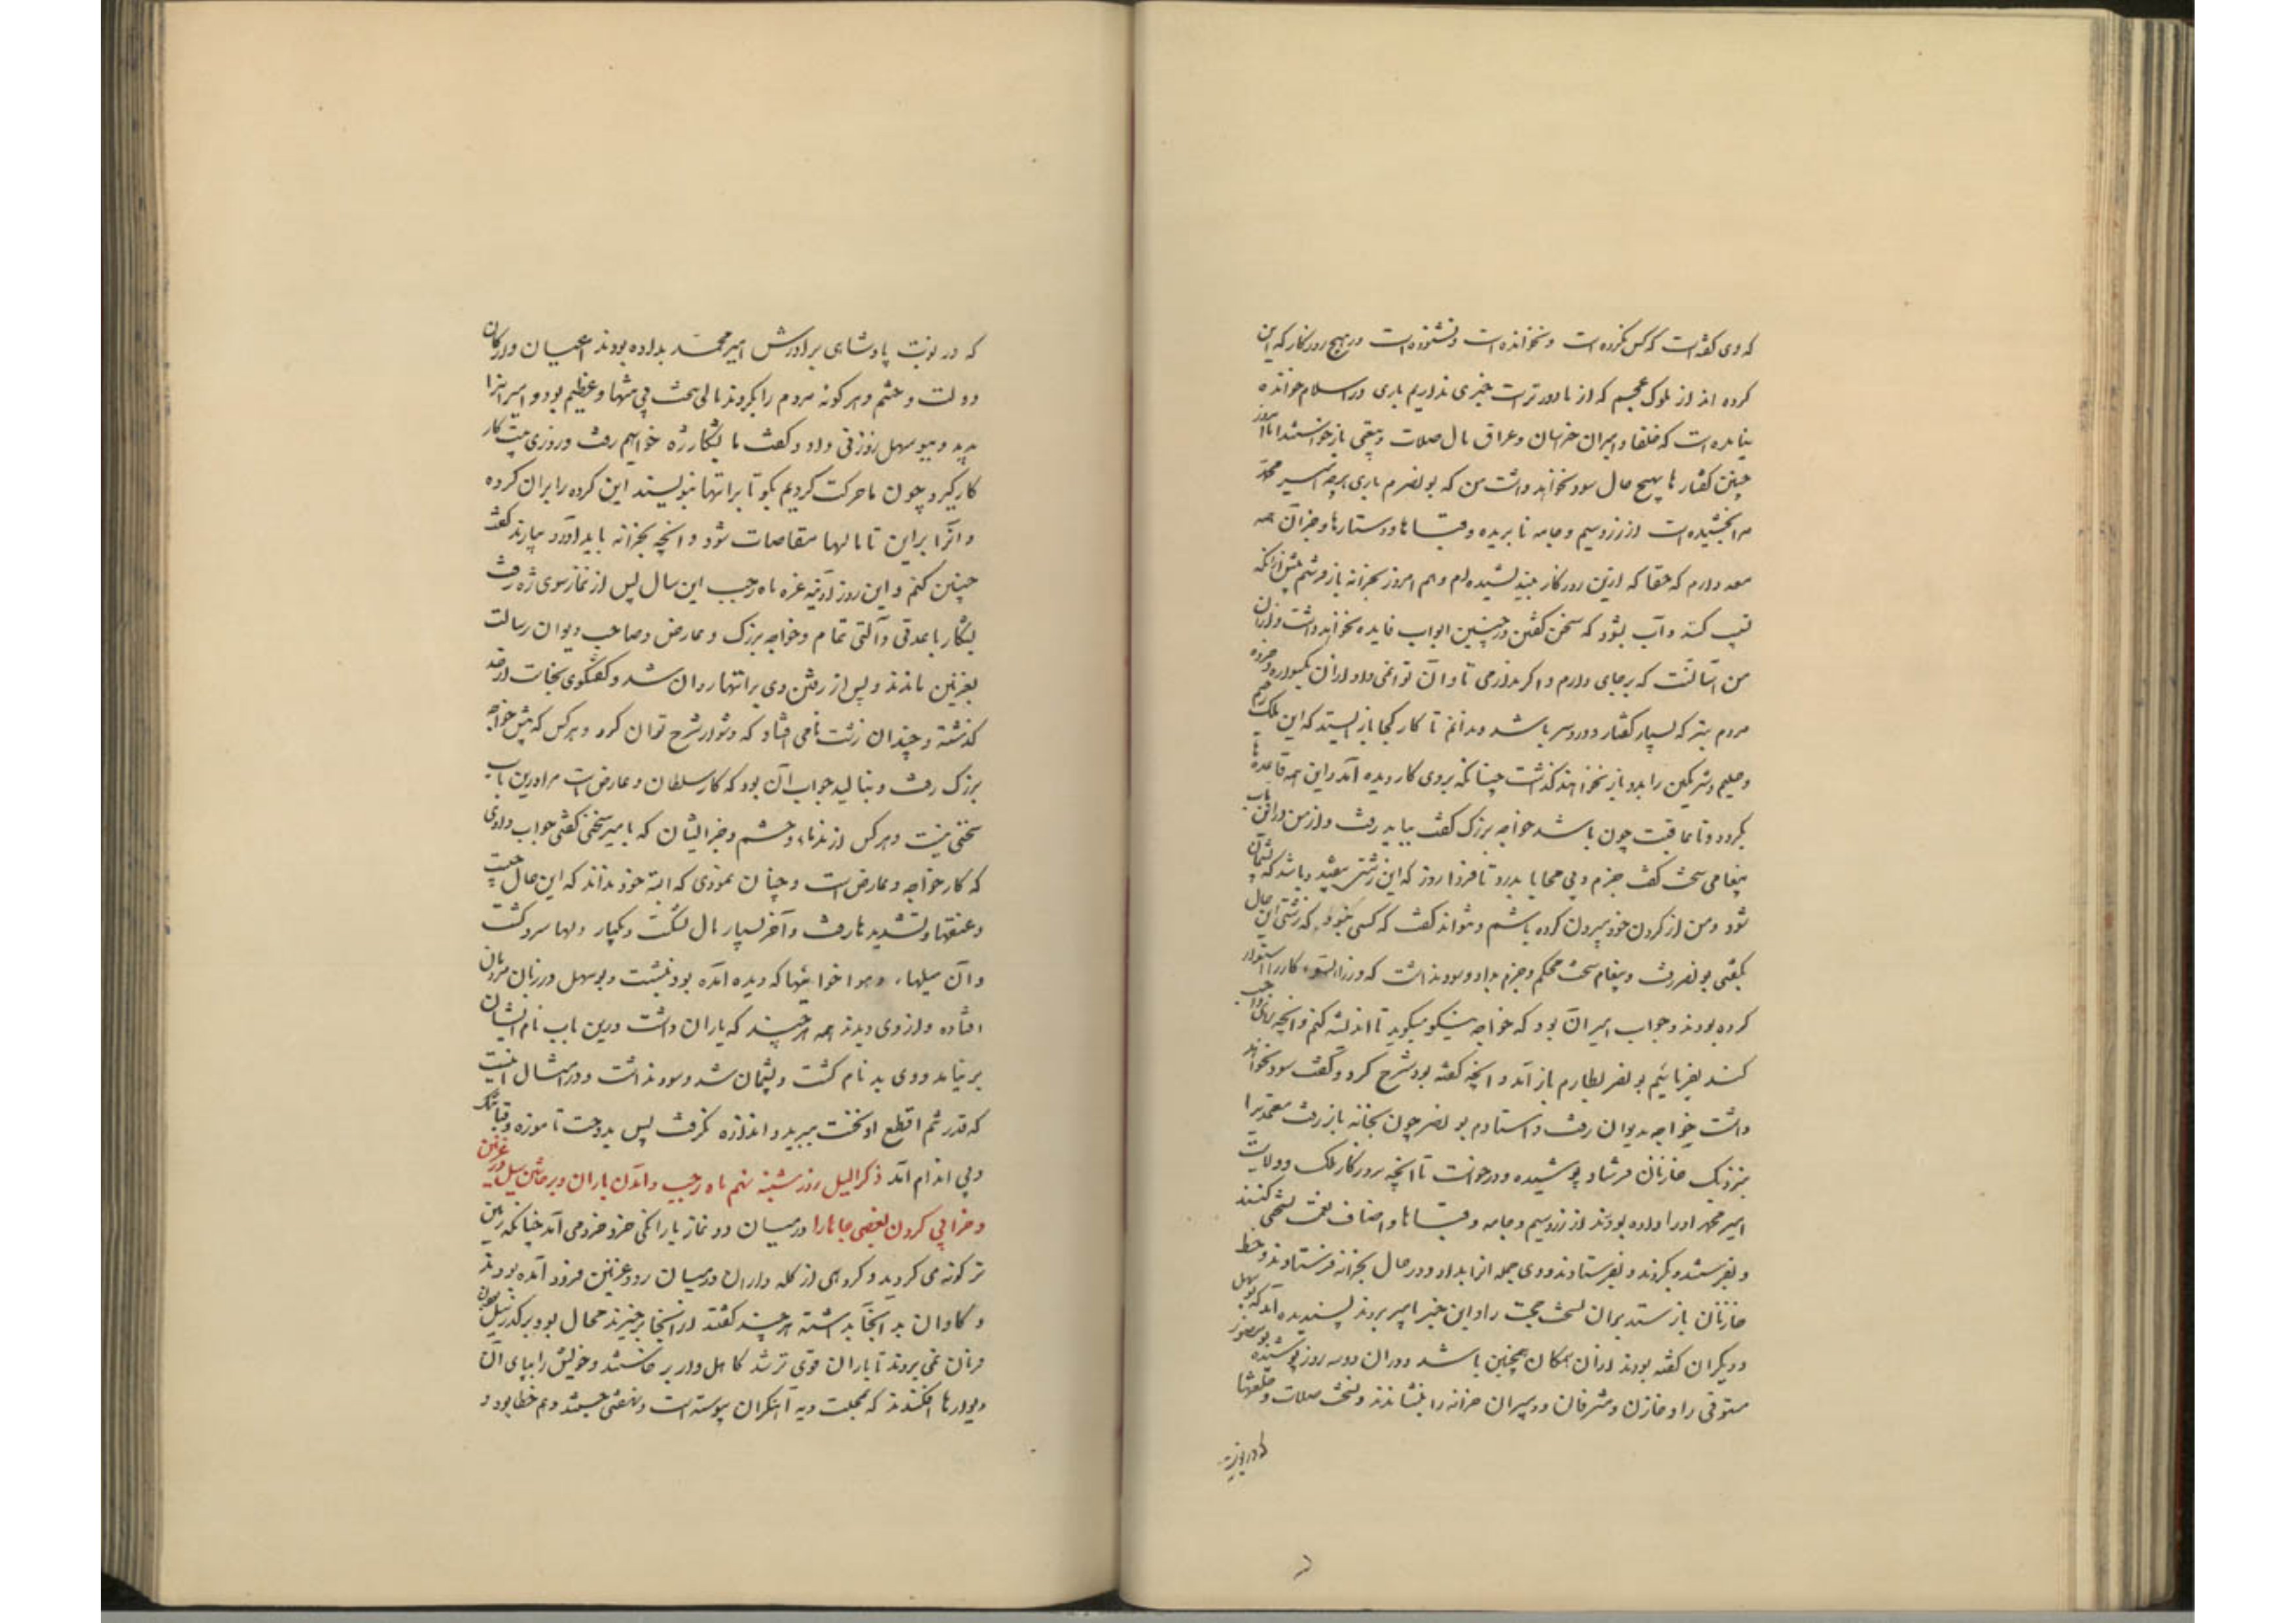 که وی کفته است که کس نکرده است و نخوانده است و نشنوده است در هیچ روزکار که این
کرده اند از ملوک عجم که از ما دورترست خبری نداریم باری در اسلام خوانده
نیامده است که خلفا و امیران خراسان و عراق مال صلات و بیعتی بازخواستند اما امروز
چنین کفتارها بهیچ حال سود نخواهد داشت من که بونصرم باری هرچه امیر محمد
مرا بخشیده است از زر و سیم و جامه نابریده و قباها و دستارها و جز آن همه
معد دارم که حقا که ازین روزکار بیندیشیده ام و هم امروز بخزانه باز فرستم پیش از آنکه
تسبیب کنند و آب بشود که سخن کفتن در چنین ابواب فایده نخواهد داشت و از آن
من آسانست که برجای دارم و اکر ندارمی تاوان توانمی داد از آن یکسواره و خرده
مردم بتر که بسیار کفتار و دردسر باشد و ندانم تا کار کجا بازایستد که این ملک رحیم
و حلیم و شرمکین را بدو باز نخواهند کذاشت چنانکه بروی کار دیده آمد و این همه قاعده‌ها
بکردد و تا عاقبت چون باشد خواجه بزرک کفت بباید رفت و از من درین باب
پیغامی سخت کفت جزم و بی محابا بدرد تا فردا روز که این زشتی بیفتد و باشد که پشیمان
شود و من از کردن خود بیرون کرده باشم و نتواند کفت که کسی نبود که زشتی این حال
بکفتی بونصر رفت و پیغام سخت محکم و جزم بداد و سود نداشت که وزراءالسوء کار را استوار
کرده بودند و جواب امیر آن بود که خواجه نیکو میکوید تا اندیشه کنم و آنچه رأی واجب
کند بفرمائیم بونصر بطارم باز آمد و آنچه کفته بود شرح کرد و کفت سود نخواهد
داشت خواجه بدیوان رفت و استادم بونصر چون بخانه باز رفت معتمدی را
بنزدیک خازنان فرستاد پوشیده و درخواست تا آنچه بروزکار ملک و ولایت
امیر محمد او را داده بودند از زر و سیم و جامه و قباها و اصناف نعمت نسختی کنند
و بفرستند و بکردند و بفرستادند و وی جمله آنرا بداد و در حال بخزانه فرستادند و خط
خازنان بازستد بران نسخت حجت را و این خبر بامیر بردند پسندیده آمد که بوسهل
و دیکران کفته بودند از آن همکان همچنین باشد و در آن دو سه روز پوشیده بومنصور
مستوفی را و خازنان و مشرفان و دبیران خزانه را بنشاندند و نسخت صلات و خلعتها
که در نوبت
که در نوبت پادشاهی برادرش امیر محمد بداده بودند اعیان و ارکان
دولت و حشم و هرکونه مردم را بکردند مالی سخت بی منتها و عظیم بود و امیر آنرا
بدید و ببوسهل زوزنی داد و کفت ما بشکار ژه خواهیم رفت و روزی بیست کار
کار کیرد چون ما حرکت کردیم بکو تا براتها بنویسند این کروه را بران کروه
و آنرا براین تا مالها مقاصات شود و آنچه بخزانه باید آورد بیارند کفت
چنین کنم و این روز آدینه غره ماه رجب این سال پس از نماز سوی ژه رفت
بشکار با عدتی و آلتی تمام و خواجه بزرک و عارض و صاحب دیوان رسالت
بغزنین ماندند و پس از رفتن وی براتها روان شد و کفتکوی بخاست از حد
کذشته و چندان زشت نامی افتاد که دشوار شرح توان کرد و هرکس که پیش خواجه
بزرک رفت و بنالید جواب آن بود که کار سلطان و عارض است مرا درین باب
سخنی نیست و هرکس از ندماء و حشم و جز ایشان که با امیر سخنی کفتی جواب دادی
که کار خواجه و عارض است و چنان نمودی که البته خود نداند که این حال چیست
و عنفها و تشدیدها رفت و آخر بسیار مال لشکست و بیکبار دلها سرد کشت
و آن میلها و هواخواهیها که دیده آمده بود بنشست و بوسهل در زبان مردمان
افتاده و از وی دیدند همه هرچند که یاران داشت درین باب نام ایشان
برنیامد و وی بدنام کشت و پشیمان شد و سود نداشت و در امثال اینست
که قدر ثم اقطع او نخست ببرید و اندازه نکرفت پس بدوخت تا موزه و قبا تنک
و بی اندام آمد ذکر السیل روز شنبه نهم ماه رجب و آمدن باران و برخاستن سیل در غزنین
و خرابی کردن بعضی جاها را درمیان دو نماز بارانکی خرد خرد می آمد چنانکه زمین
ترکونه می کردید و کروهی از کله داران درمیان رود غزنین فرود آمده بودند
و کاوان بدآنجا بداشته هرچند کفتند از آنجا برخیزند محال بود بر کذر سیل بودن
فرمان نمی بردند تا باران قوی تر شد کاهل وار برخاستند و خویش را بپای آن
دیوارها افکندند که بمحلت دیه آهنکران پیوسته است و نهفتی جستند و هم خطا بود و